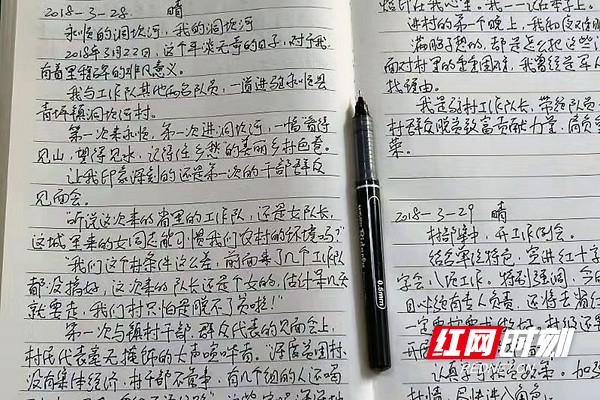 2018-3-28. 晴
永顺的洞坎河，我的洞坎河
2018年3月22日，这个平淡无奇的日子，对于我
有着里程碑的非凡意义。
我与工作队其他两名队员，一道进驻永顺县
青坪镇洞坎河村。
第一次来永顺，第一次进洞坎河，一幅看得
见山，望得见水，记得住乡愁的美丽乡村画卷。
让我印象深刻的还是第一次的干部群众
见面会。
"听说这次来的省里的工作队，还是女队长，
这城里来的女同志能习惯我们农村的环境吗？"
"我们这个村条件这么差，前面来了几个工作队
都没搞好，这次来的队长还是个女的，估计呆几天
就要走，我们村只怕是脱不了贫啦！"
第一次与镇村干部、群众代表的见面会上，
村民代表毫无掩饰的大声喧哗着。"深度贫困村，
没有集体经济，村干部不管事，有几个组的人还喝
在我心里。
进村的第一个晚上，我
面对村里的重重困难，我曾经是军人
找经由。
我是驻村工作队长，带给队员
村群众脱贫致富贡献力量，肩负
荣。
2018-3-29 晴
村部集中，开工作例会。
结合单位特色，宣讲红十字
学会，八项工作。特别强调，
目必须有专人负责，还将去
一定要
认真学习
村情，尽快进入角色。
0.5mm
红网时刻
REDNET MOMENT